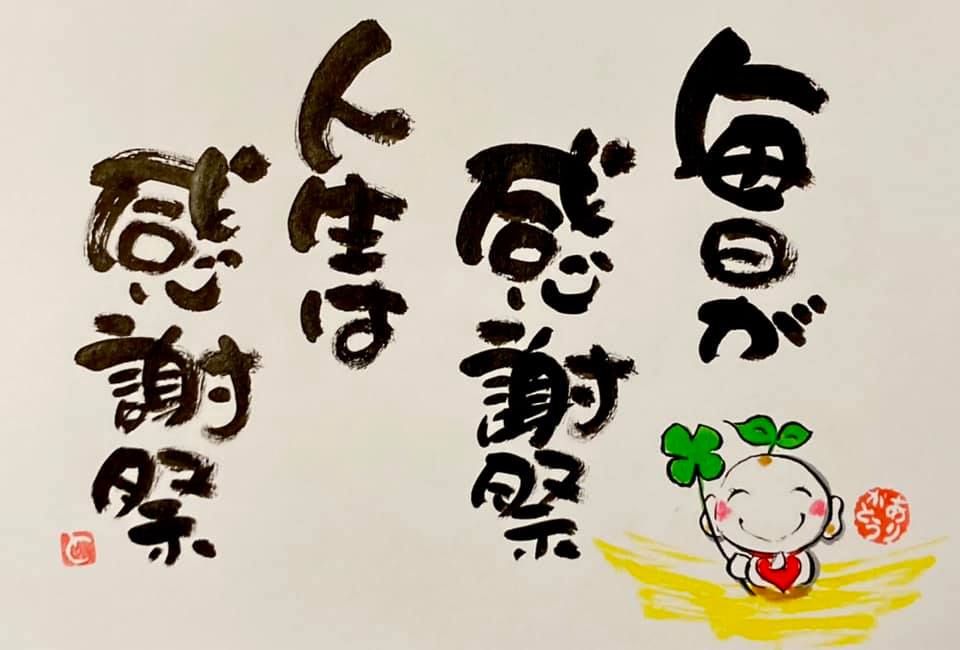 毎日が
感謝祭
人生は
感謝祭
ありがとう